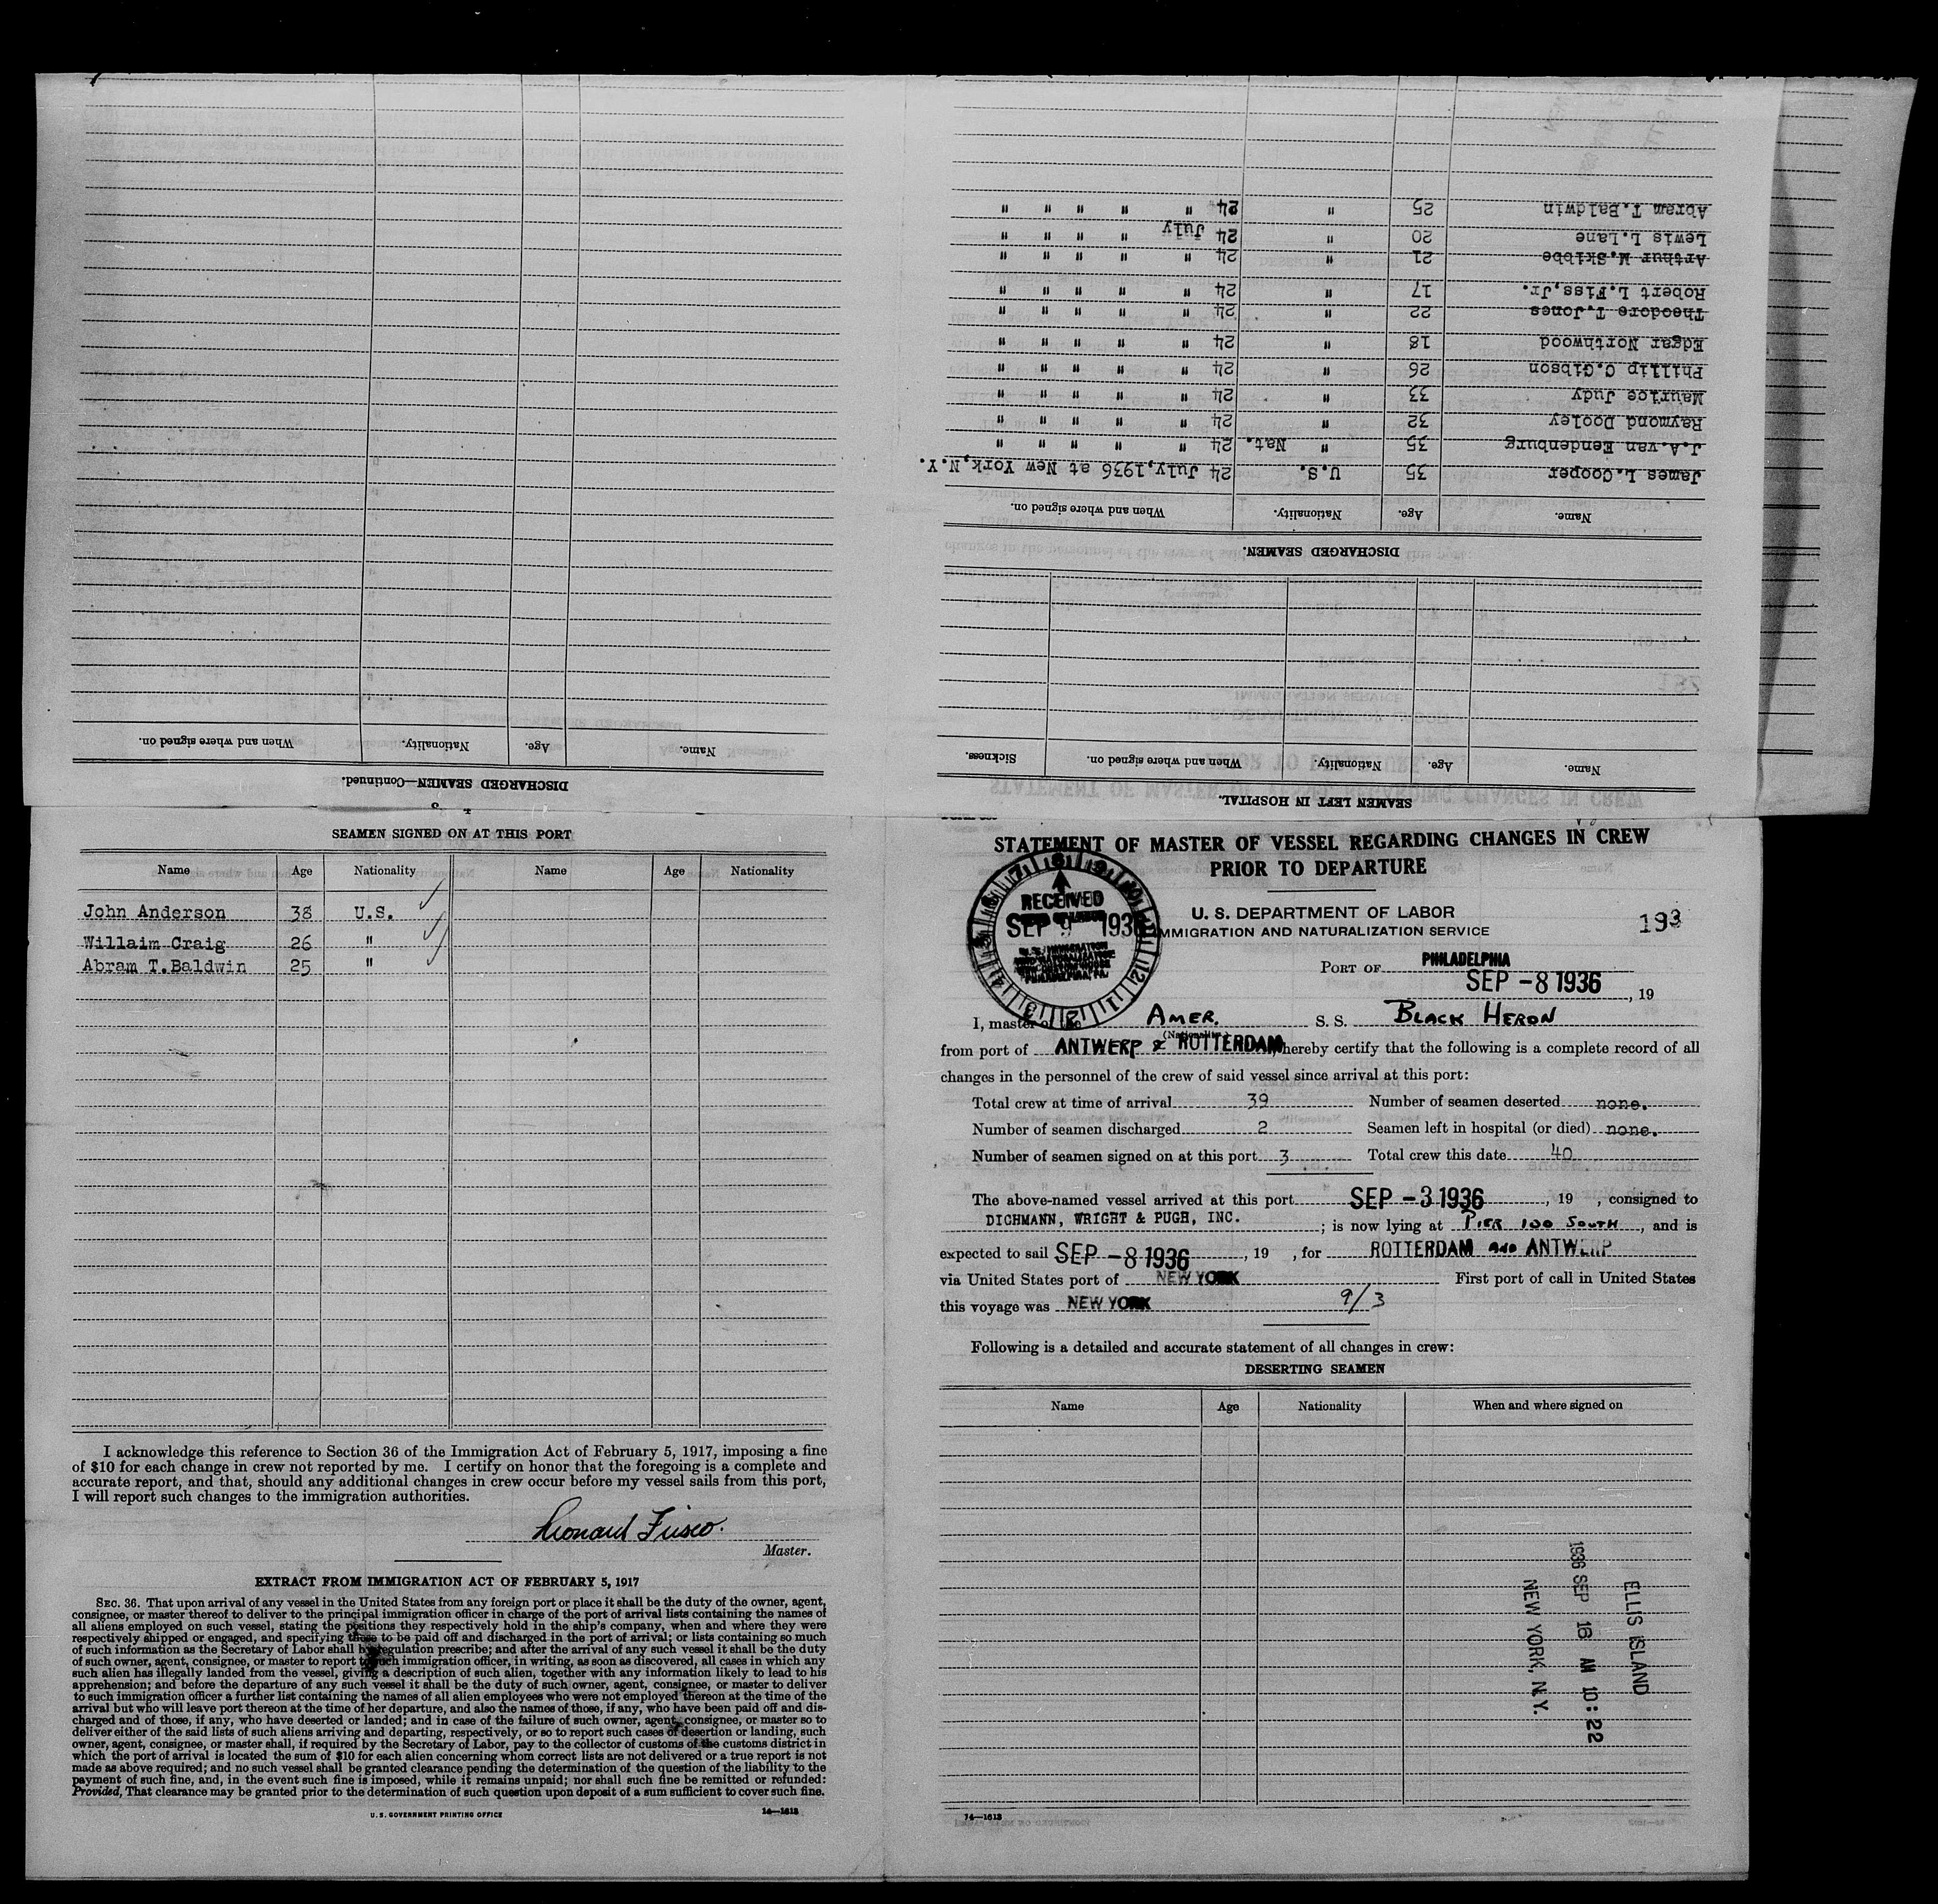 DISCHARGED SEAMEN—Continued.
Name. Age. Nationality. When and where signed on.
SEAMEN LEFT IN HOSPITAL.
Name. Age. Nationality. When and where signed on. Sickness.
DISCHARGED SEAMEN.
Name. Age. Nationality. When and where signed on.
James L.Cooper 35 U.S. 24 July,1936 at New York,N.Y.
J.A.van Eendenburg 35 " Nat. 24 " " " " "
Raymond Dooley 32 " 24 " " " " "
Maurice Judy 33 " 24 " " " " "
Phillip C.Gibson 26 " 24 " " " " "
Edgar Northwood 18 " 24 " " " " "
Theodore T.Jones 22 " 24 " " " " "
Robert L.Fiss,Jr. 17 " 24 " " " " "
Arthur M.Skibbe 21 " 24 " " " " "
Lewis L.Lane 20 " 24 July " " " "
Abram T.Baldwin 25 " 24 " " " " "
SEAMEN SIGNED ON AT THIS PORT
Name Age Nationality Name Age Nationality
John Anderson 38 U.S.
Willaim Craig 26 "
Abram T.Baldwin 25 "
I acknowledge this reference to Section 36 of the Immigration Act of February 5, 1917, imposing a fine
of $10 for each change in crew not reported by me. I certify on honor that the foregoing is a complete and
accurate report, and that, should any additional changes in crew occur before my vessel sails from this port,
I will report such changes to the immigration authorities.
Leonard Fusco.
Master.
EXTRACT FROM IMMIGRATION ACT OF FEBRUARY 5, 1917
SEC. 36. That upon arrival of any vessel in the United States from any foreign port or place it shall be the duty of the owner, agent,
consignee, or master thereof to deliver to the principal immigration officer in charge of the port of arrival lists containing the names of
all aliens employed on such vessel, stating the positions they respectively hold in the ship's company, when and where they were
respectively shipped or engaged, and specifying those to be paid off and discharged in the port of arrival; or lists containing so much
of such information as the Secretary of Labor shall by regulation prescribe; and after the arrival of any such vessel it shall be the duty
of such owner, agent, consignee, or master to report to such immigration officer, in writing, as soon as discovered, all cases in which any
such alien has illegally landed from the vessel, giving a description of such alien, together with any information likely to lead to his
apprehension; and before the departure of any such vessel it shall be the duty of such owner, agent, consignee, or master to deliver
to such immigration officer a further list containing the names of all alien employees who were not employed thereon at the time of the
arrival but who will leave port thereon at the time of her departure, and also the names of those, if any, who have been paid off and dis-
charged and of those, if any, who have deserted or landed; and in case of the failure of such owner, agent, consignee, or master so to
deliver either of the said lists of such aliens arriving and departing, respectively, or so to report such cases of desertion or landing, such
owner, agent, consignee, or master shall, if required by the Secretary of Labor, pay to the collector of customs of the customs district in
which the port of arrival is located the sum of $10 for each alien concerning whom correct lists are not delivered or a true report is not
made as above required; and no such vessel shall be granted clearance pending the determination of the question of the liability to the
payment of such fine, and, in the event such fine is imposed, while it remains unpaid; nor shall such fine be remitted or refunded:
Provided, That clearance may be granted prior to the determination of such question upon deposit of a sum sufficient to cover such fine.
U. S. GOVERNMENT PRINTING OFFICE 14—1613
STATEMENT OF MASTER OF VESSEL REGARDING CHANGES IN CREW
PRIOR TO DEPARTURE
RECEIVED
SEP 9 1936
PHILADELPHIA, PA.
U. S. DEPARTMENT OF LABOR
IMMIGRATION AND NATURALIZATION SERVICE
193
PORT OF PHILADELPHIA
SEP -8 1936, 19
I, master of the AMER. S. S. BLACK HERON
(Nationality)
from port of ANTWERP & ROTTERDAM, hereby certify that the following is a complete record of all
changes in the personnel of the crew of said vessel since arrival at this port:
Total crew at time of arrival 39 Number of seamen deserted none.
Number of seamen discharged 2 Seamen left in hospital (or died) none.
Number of seamen signed on at this port 3 Total crew this date 40
The above-named vessel arrived at this port SEP -3 1936, 19 , consigned to
DICHMANN, WRIGHT & PUGH, INC. ; is now lying at PIER 100 SOUTH, and is
expected to sail SEP -8 1936, 19 , for ROTTERDAM AND ANTWERP
via United States port of NEW YORK First port of call in United States
this voyage was NEW YORK 9/3
Following is a detailed and accurate statement of all changes in crew:
DESERTING SEAMEN
Name Age Nationality When and where signed on
ELLIS ISLAND
1936 SEP 16 AM 10:22
NEW YORK, N.Y.
14—1613